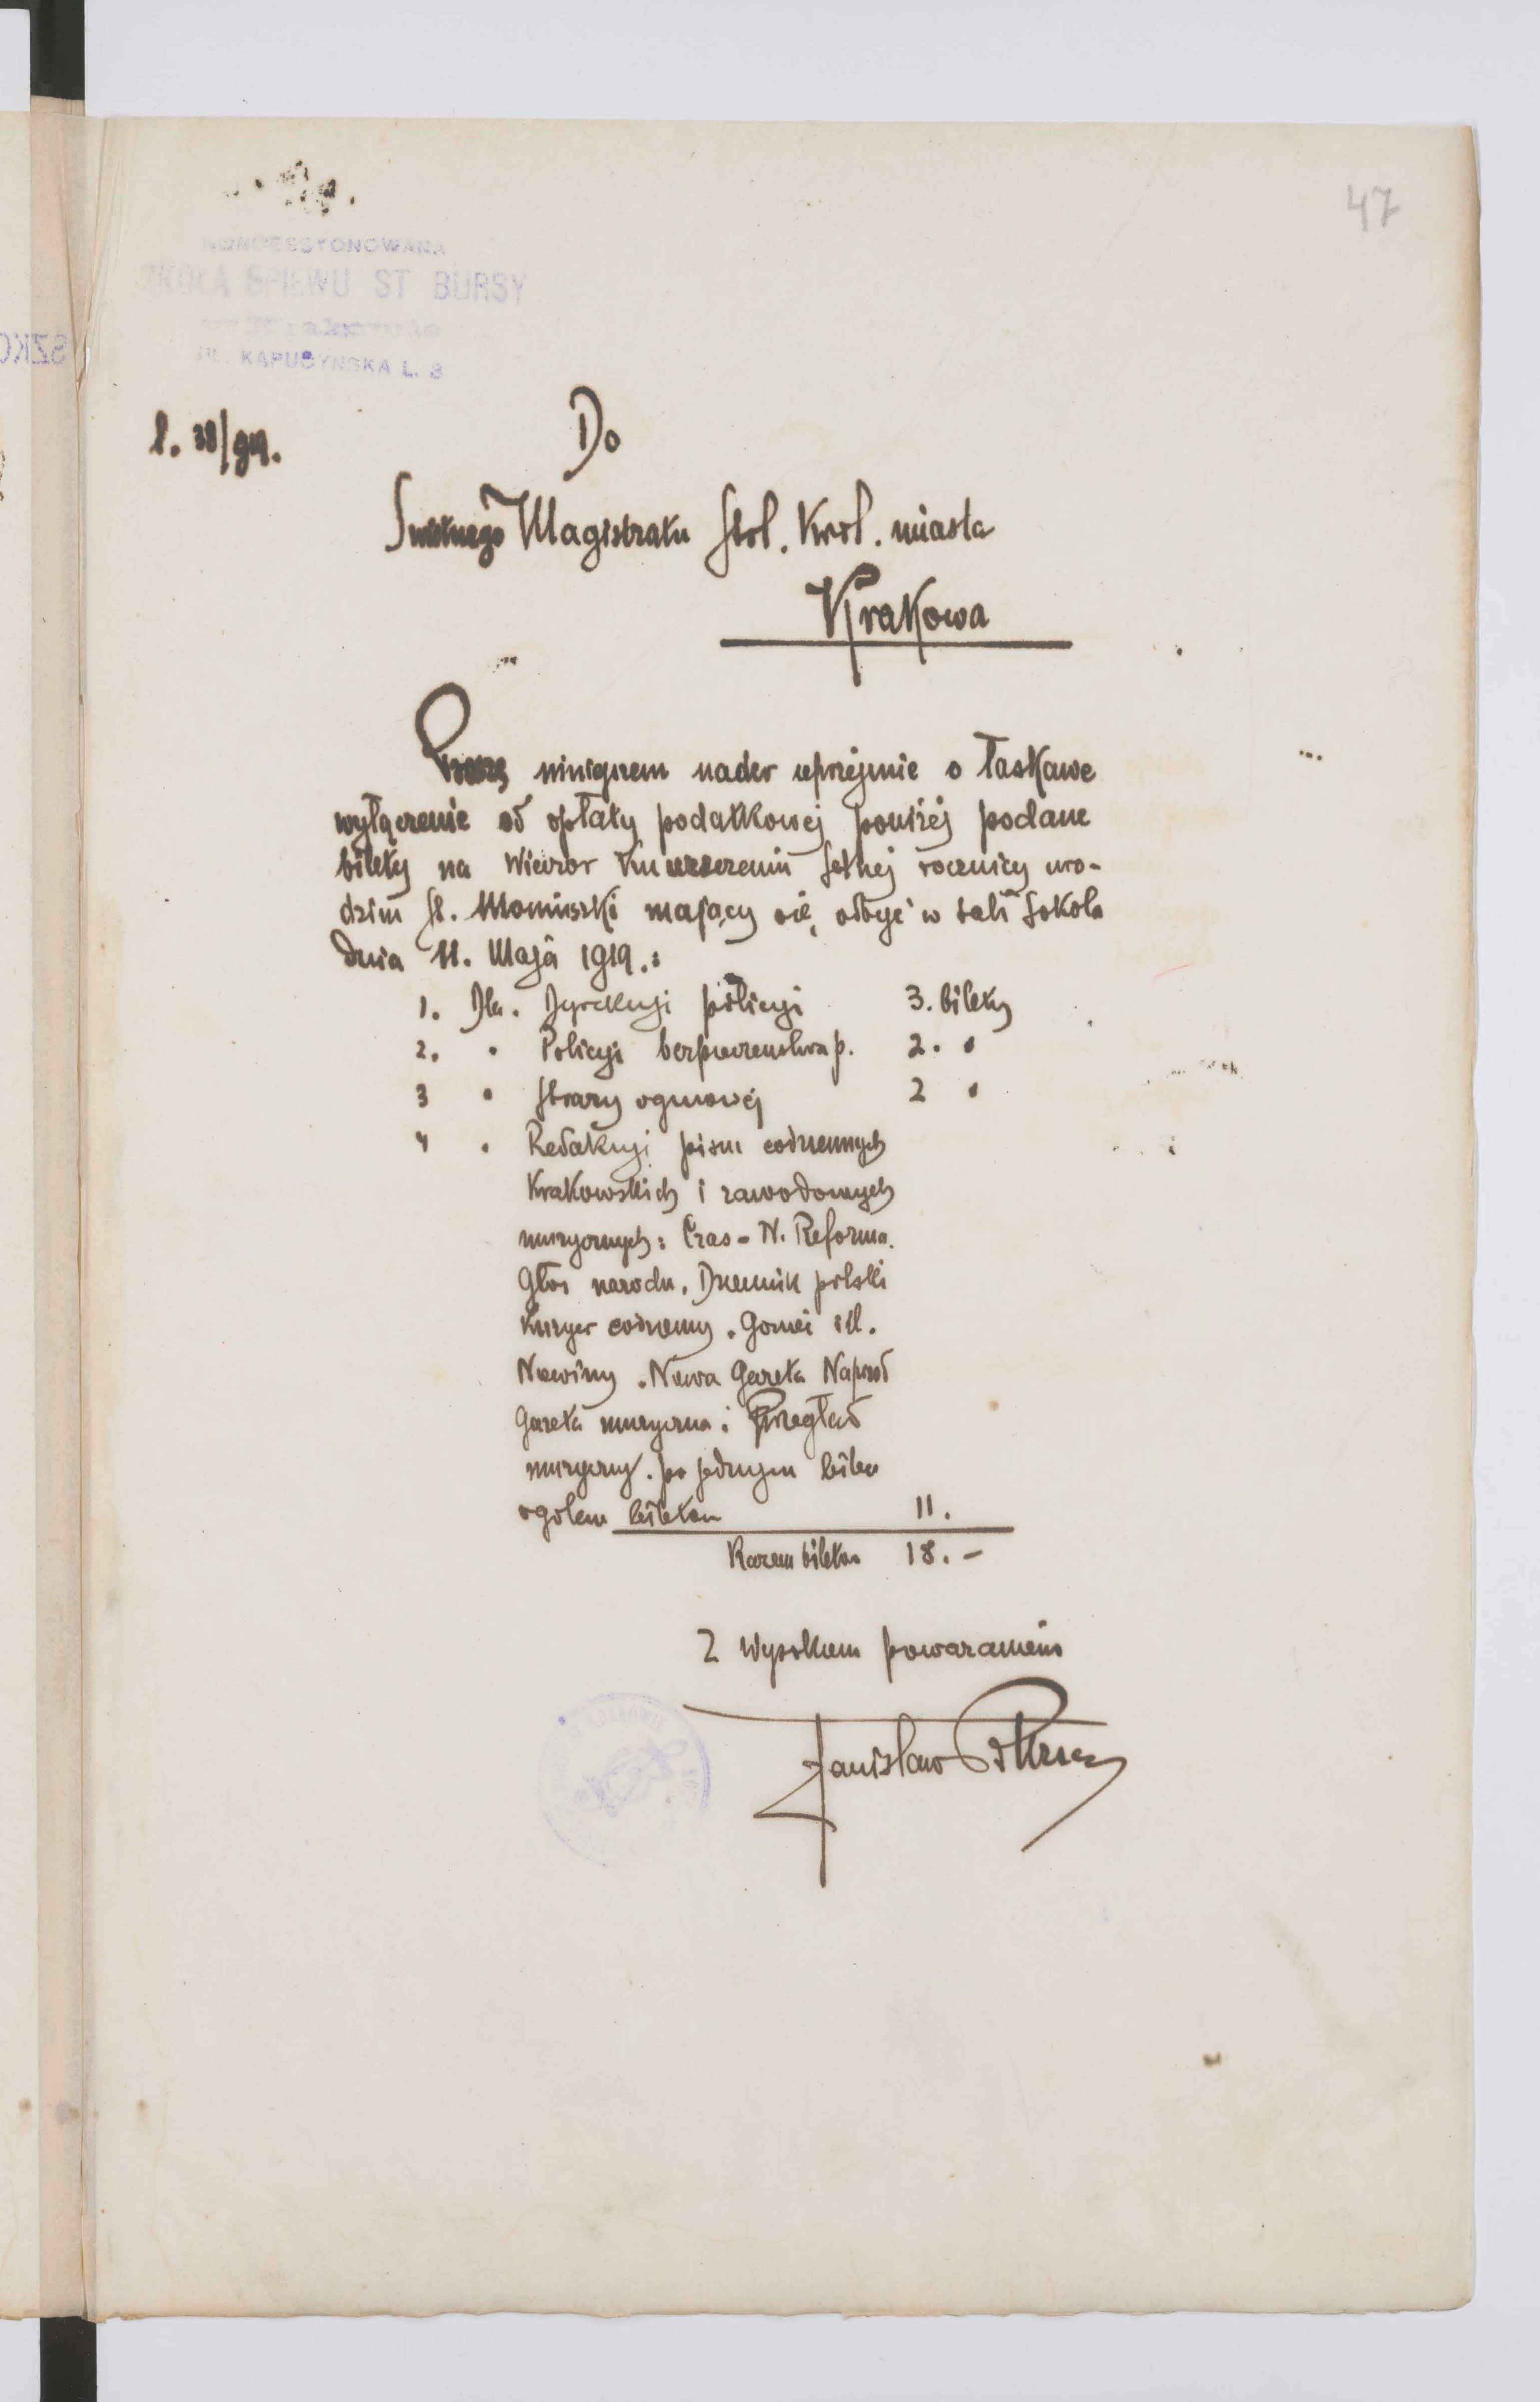 47
KONCESSYONOWANA
SZKOŁA ŚPIEWU ST BURSY
w Krakowie
UL. KAPUCYŃSKA L. 3
L. 38/919.
Do
Świetnego Magistratu Stoł. Król. miasta
Krakowa
Proszę niniejszem nader uprzejmie o łaskawe
wyłączenie od opłaty podatkowej poniżej podane
bilety na Wieczor ku uczczeniu setnej rocznicy uro-
dzin St. Moniuszki mający się odbyć w sali Sokoła
dnia 11. Maja 1919.:
1. Dla. Dyrekcyi policyi 3. bilety
2. " Policyi bezpieczeństwa p. 2. "
3 " Straży ogniowej 2 "
4 " Redakcyi pism codziennych
Krakowskich i zawodowych
muzycznych: Czas - N. Reforma.
Głos narodu. Dziennik polski
Kuryer codzienny. Goniec ill.
Nowiny. Nowa Gazeta Naprzód
Gazeta muzyczna i Przegląd
muzyczny. po jednym bilec
ogółem biletów 11.
Razem biletów 18. -
Z Wysokiem poważaniem
Stanisław Bursa